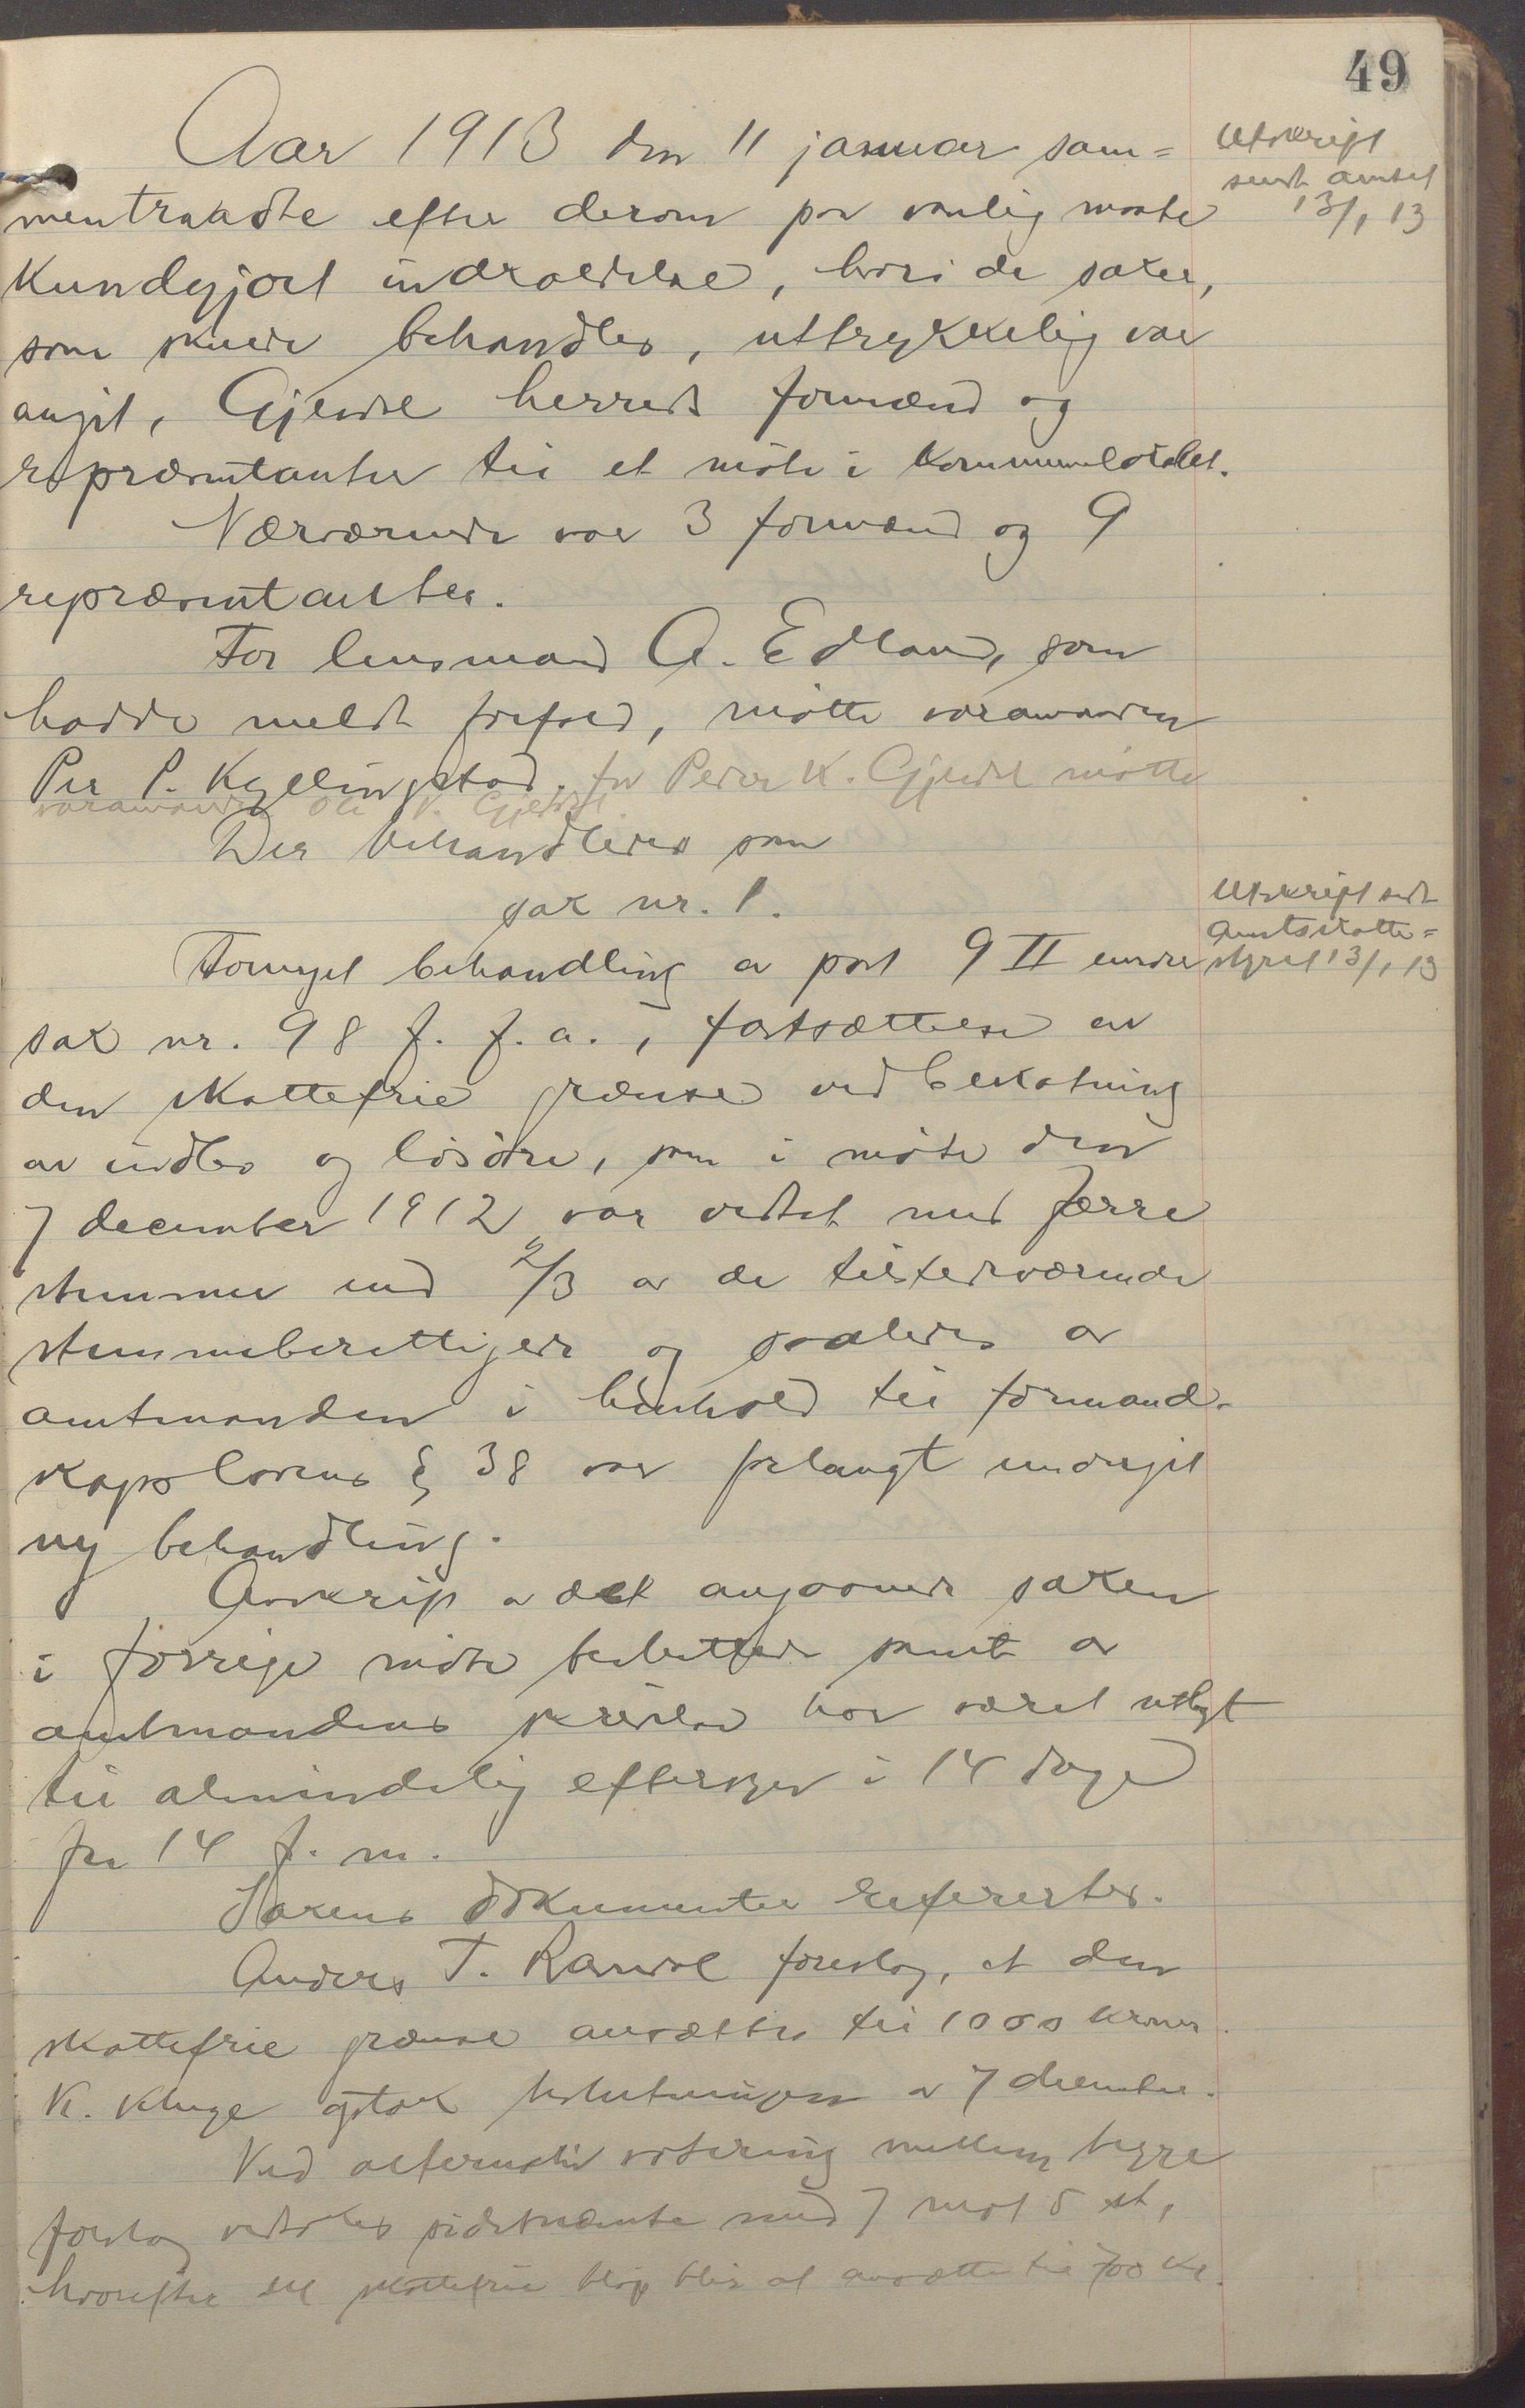 49
Aar 1913 den 11 januar sam=
mentraadte efter derom paa vanlig maate
kundgjort indkaldelse, hvori de saker,
som skulde behandles, uttrykkelig var
angit, Gjesdal herreds formænd og
repræsentanter til et møte i kommunelokalet.
Nærværende var 3 formænd og 9
repræsentanter.
For lensmand A. Edland, som
hadde meldt forfald, møtte varamanden
Per P. Kyllingstad, for Peder K. Gjesdal møtte
varamanden Ole P. Gjesdal
Der behandledes som
sak nr. 1.
Fornyet behandling av post 9 II under
sak nr. 98 f. f. a., fastsættelse av
den skattefrie grænse ved beskatning
av indtæ og løsøre, som i møte den
7 december 1912 var vedtat med færre
stemmer end 2/3 av de tilstedeværende
stemmeberettigede og saaledes av
amtmanden i henhold til formand-
skapslovens § 38 var forlangt undergit
ny behandling.
Avskrift av det angaaende saken
i forrige møte besluttede samt av
amtmandens skrivelse har været utlagt
til almindelig eftersyn i 14 dage
fra 14 f. m.
Sakens dokumenter refertes.
Anders T. Ravndal foreslog, at den
skattefrie grænse ansættes til 1000 kroner.
K. Kluge optok beslutningen av 7 december.
Ved alternativ votering mellem begge
forslag vedtokes sidstnævnte med 7 mot 5 st,
hvorefter det skattefrie beløp blir at ansætte til 700 kr.
Utskrift
sendt amtet
13/1 13
Utskrift sendt
Amtsskatte=
styret 13/1 13